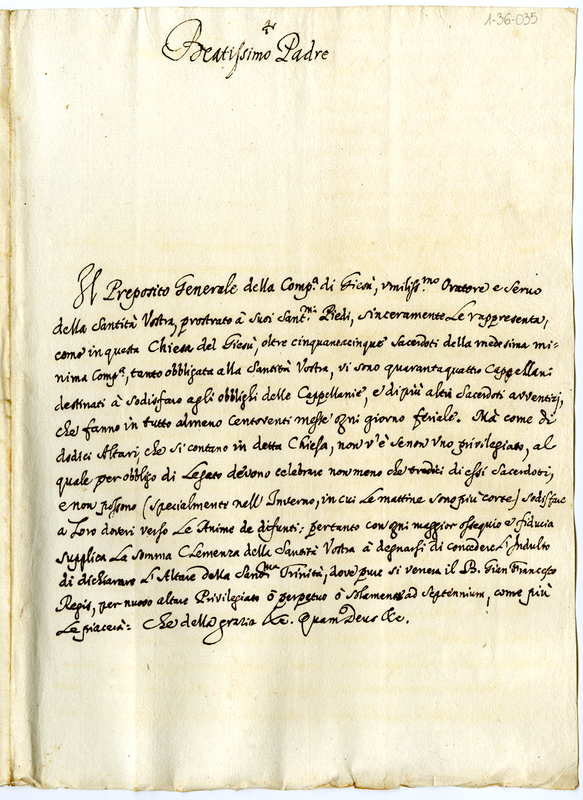 1-36-035
Beatissimo Padre
Il Preposito Generale della Comp.ª di Giesù, vmiliss.mo Oratore e Servo
della Santità Vostra, prostrato à Suoi Sant.mi Piedi, sinceramente Le rappresenta,
come in questa Chiesa del Giesù, oltre cinquantacinque Sacerdoti della medesima mi-
nima Comp.ª, tanto obbligata alla Santità Vostra, vi sono quarantaquattro Cappellani
destinati à sodisfare agli obblighi delle Cappellanie, e di più altri Sacerdoti avventizi,
che fanno in tutto almeno Centoventi messe ogni giorno feriale. Mà come di
dodici Altari, che si contano in detta Chiesa, non v'è se non vno privilegiato, al
quale per obbligo di Legato devono celebrare non meno che tredici di essi Sacerdoti,
e non possono (specialmente nell'Inverno, in cui Le mattine sono più corte) sodisfare
a Loro doveri verso Le Anime de difunti; pertanto con ogni maggior ossequio e fiducia
supplica La somma Clemenza della Santità Vostra à degnarsi di concedere L'Indulto
di dichiarare L'Altare della Sant.ma Trinità, dove pure si venera il B. Gian Francesco
Regis, per nuovo altare Privilegiato ò perpetuo ò solamente ad septennium, come più
Le piacerà: Che della grazia &c. Quam Deus &c.